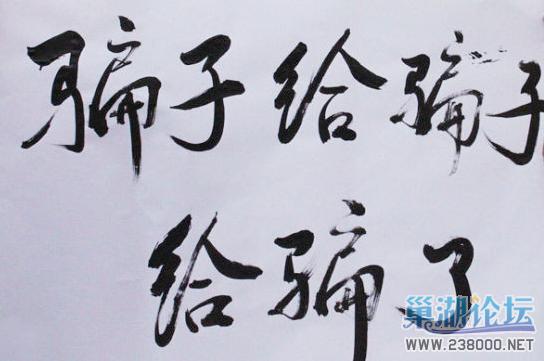 骗子给骗子
给骗了
巢湖论坛
www.238000.NET